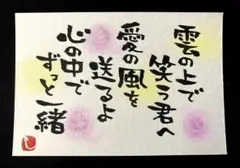 雲の上で
笑う君へ
愛の風を
送るよ
心の中で
ずっと一緒